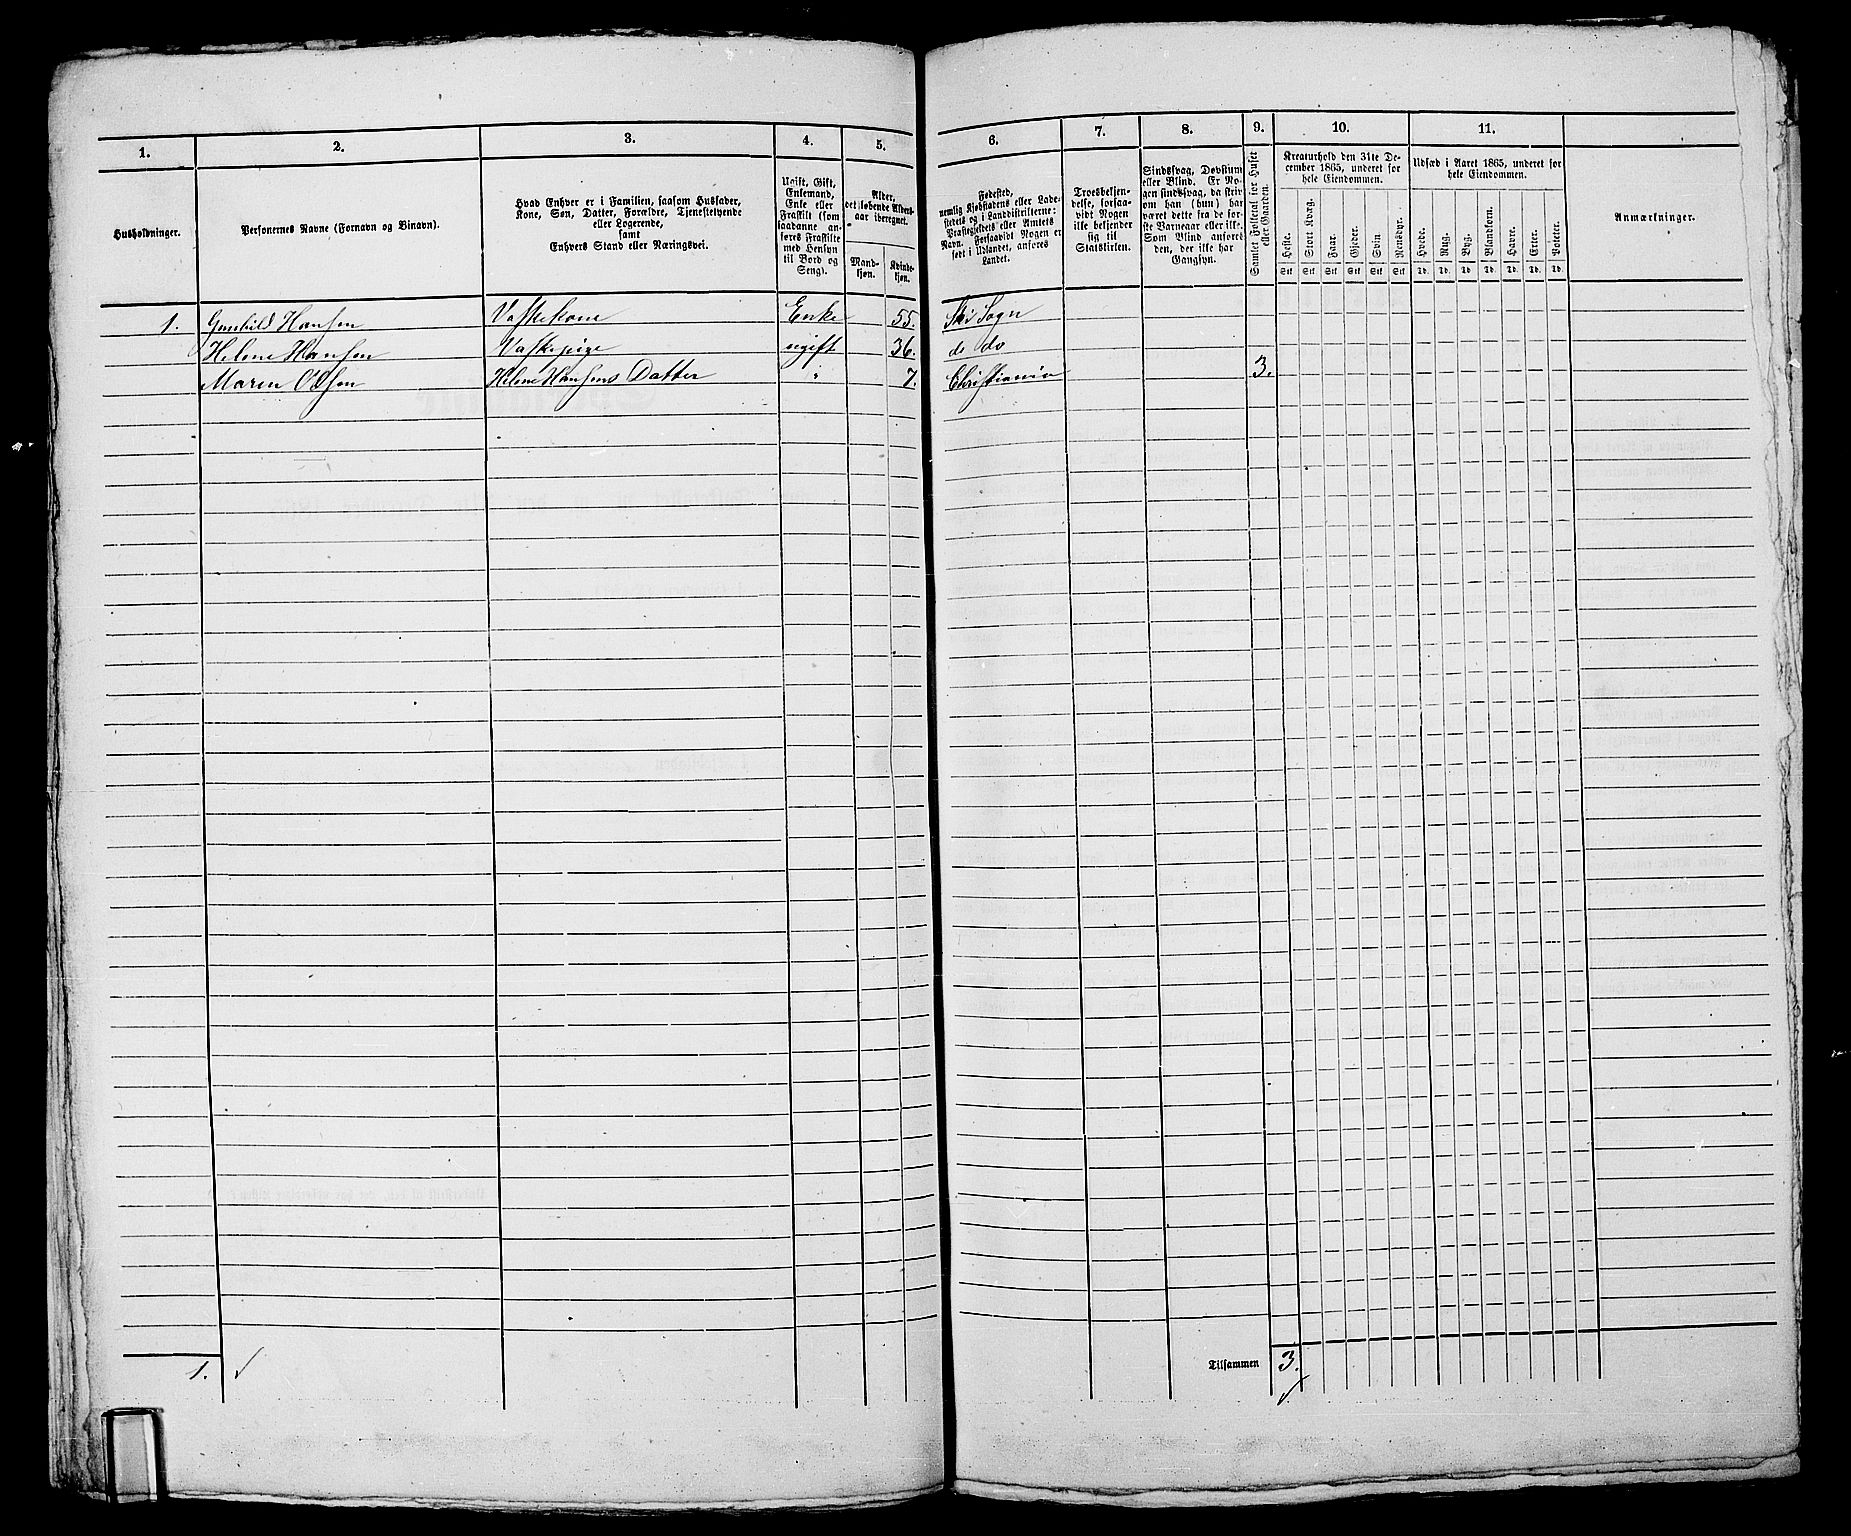 1.
2.
3.
4.
5.
6.
7.
8.
9.
10.
11.
Husholdninger.
Personernes Navne (Fornavn og Binavn).
Hvad Enhver er i Familien, saasom Husfader,
Kone, Søn, Datter, Forældre, Tjenestetyende
eller Logerende,
samt
Enhvers Stand eller Næringsvei.
Ugift, Gift,
Enkemand,
Enke eller
Fraskilt (som
saadanne an-
føres Fraskilte
med Hensyn
til Bord og
Seng).
Alder,
det løbende Alders-
aar iberegnet.
Mand-
kjøn.
Kvinde-
kjøn.
Fødested,
nemlig Kjøbstadens eller Lade-
stedets og i Landdistrikterne:
Præstegjeldets eller Amtets
Navn. Forsaavidt Nogen er
født i Udlandet, anføres
Landet.
Troesbekjen-
delse, forsaa-
vidt Nogen
ikke bekjender
sig til
Statskirken.
Sindssvag, Døvstum
eller Blind. Er No-
gen sindssvag, da skriv
om han (hun) har
været dette fra de før-
ste Barneaar eller ikke.
Som Blind anføres
den, der ikke har
Gangsyn.
Samlet Folketal for Huset
eller Gaarden.
Kreaturhold den 31te De-
cember 1865, underet for
hele Eiendommen.
Heste.
Stort Kvæg.
Faar.
Gjeder.
Svin
Rensdyr.
Stk Stk Stk Stk Stk Stk
Udsæd i Aaret 1865, underet for
hele Eiendommen.
Hvede.
Rug.
Byg.
Blandkorn.
Havre.
Erter.
Poteter.
Td. Td. Td. Td. Td. Td. Td.
Anmærkninger.
1. Gunhild Hansen Vaskekone Enke 55. Ski Sogn
Helene Hansen Vaskepige ugift 36. do do
Maren Olsen Helene Hansens Datter " 7. Christiania 3.
1. ✓
Tilsammen 3.
✓